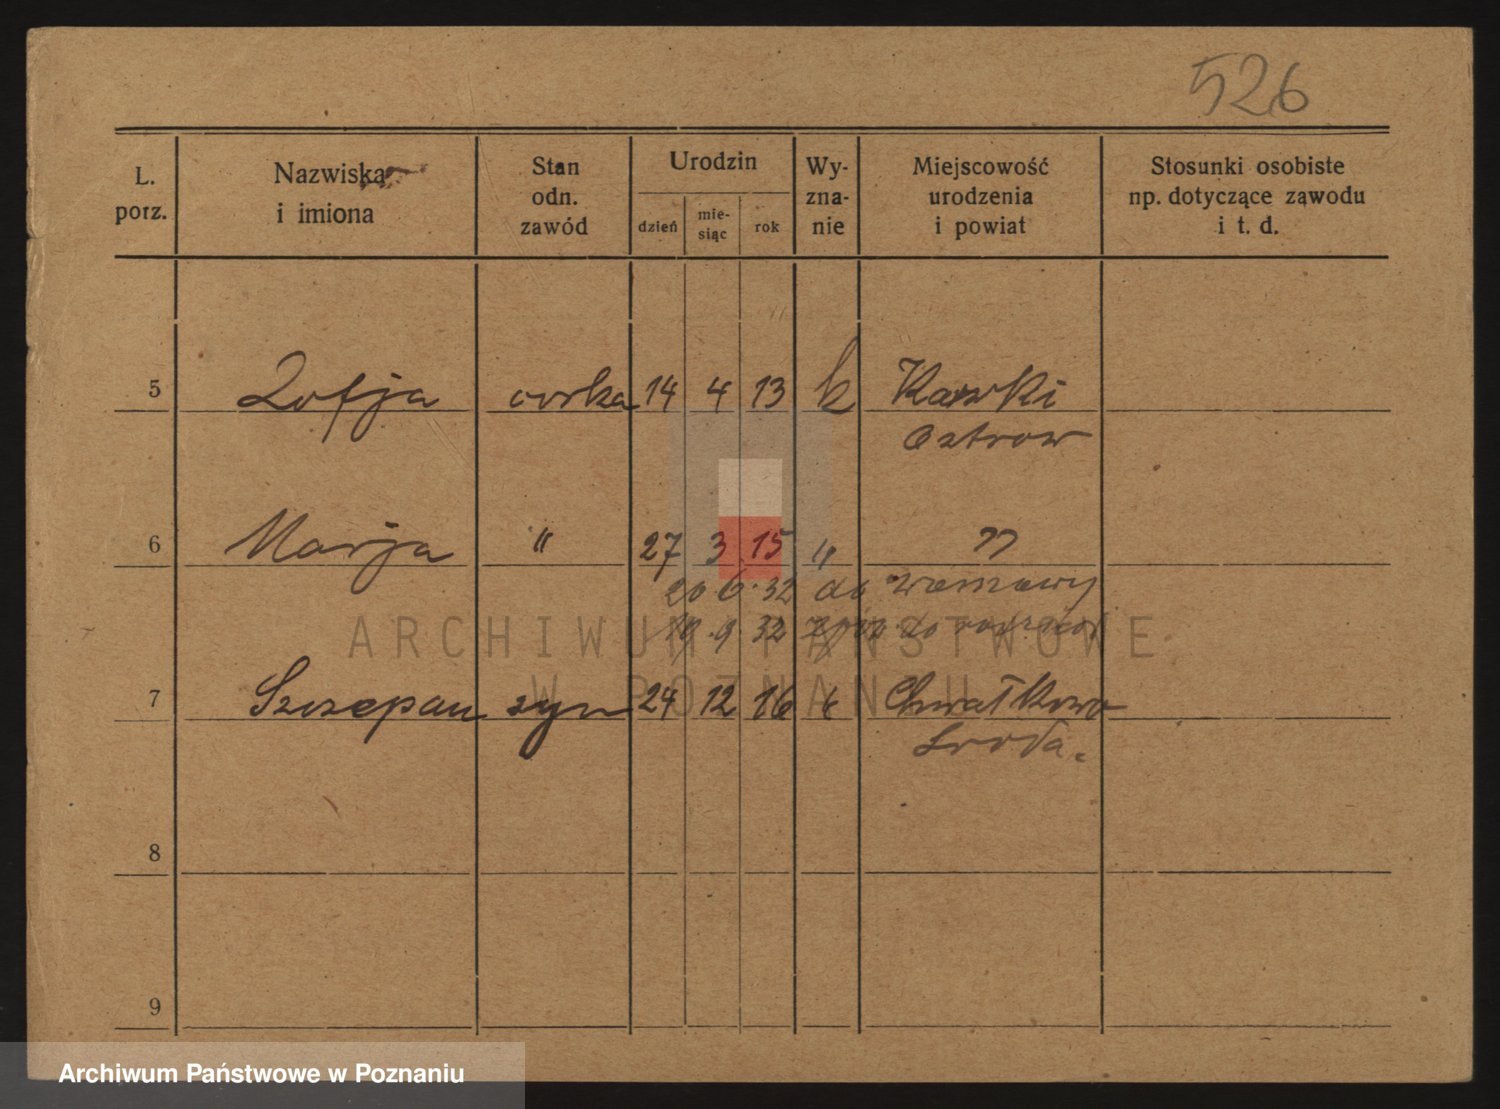 526
L. porz. Nazwiska i imiona Stan odn. zawód Urodzin dzień mie- siąc rok Wy- zna- nie Miejscowość urodzenia i powiat Stosunki osobiste np. dotyczące zawodu i t. d.
5 Zofja córka 14 4 13 k Kawki
Ostrow
6 Marja " 27 3 15 " "
20 6. 32 do
ARCHIWUM PAŃSTWOWE
9 32
W POZNANIU
7 Szczepan syn 24 12 16 " Chwałkowo
Sroda.
8
9
Archiwum Państwowe w Poznaniu